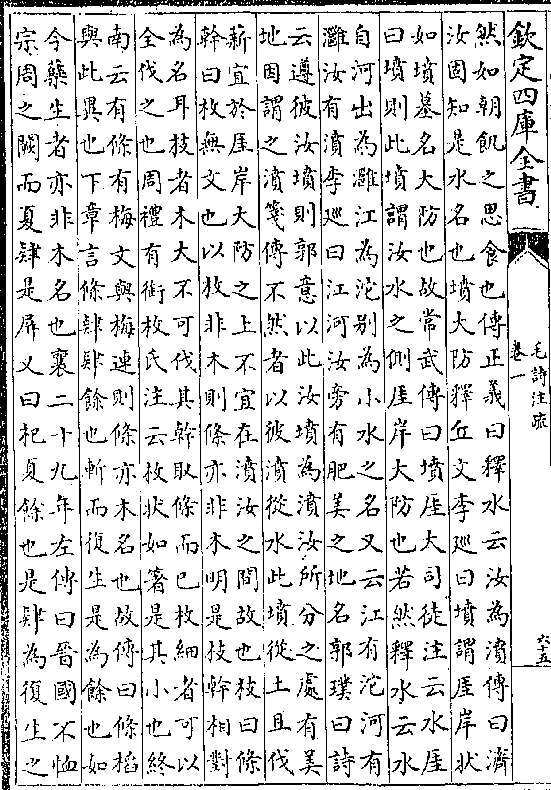 欽定四庫全書
毛詩注疏
卷一
六十五
然如朝飢之思食也傳正義曰釋水云汝為濆傳曰濟
汝固知是水名也墳大防釋丘文李巡曰墳謂厓岸狀
如墳墓名大防也故常武傳曰墳厓大司徒注云水厓
曰墳則此墳謂汝水之側厓岸大防也若然釋水云水
自河出為灉江為沱別為小水之名又云江有沱河有
灉汝有濆李巡曰江河汝旁有肥美之地名郭璞曰詩
云遵彼汝墳則郭意以此汝墳為濆汝所分之處有美
地因謂之濆箋傳不然者以彼濆從水此墳從土且伐
薪宜於厓岸大防之上不宜在濆汝之間故也枝曰條
幹曰枚無文也以枚非木則條亦非木明是枝幹相對
為名耳枝者木大不可伐其幹取條而已枚細者可以
全伐之也周禮有銜枚氏注云枚狀如箸是其小也終
南云有條有梅文與梅連則條亦木名也故傳曰條槄
與此異也下章言條肄肄餘也斬而復生是為餘也如
今蘖生者亦非木名也襄二十九年左傳曰晉國不恤
宗周之闕而夏肄是屏又曰杞夏餘也是肄為復生之